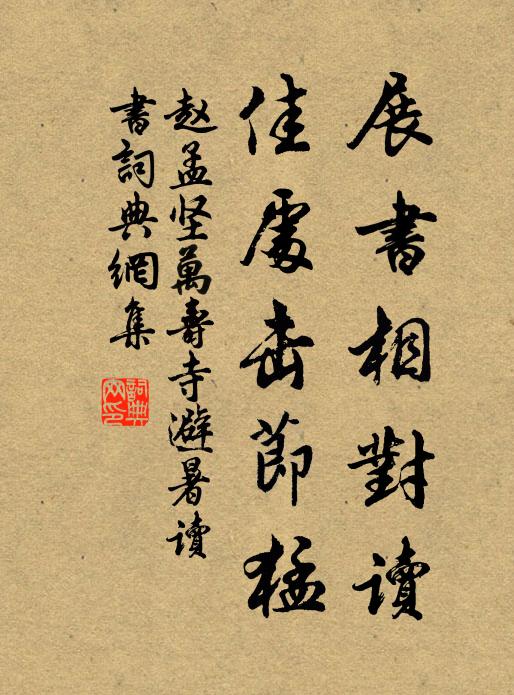 展書相對讀
佳處击節猛
赵孟坚萬壽寺避暑讀
書詞典網集
詞典
网印